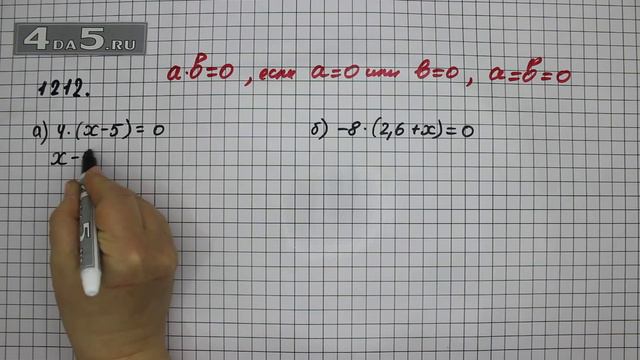 4DA5.RU
a·b=0, если a=0 или b=0, a=b=0
1212.
а) 4·(x-5)=0
б) -8·(2,6+x)=0
x-